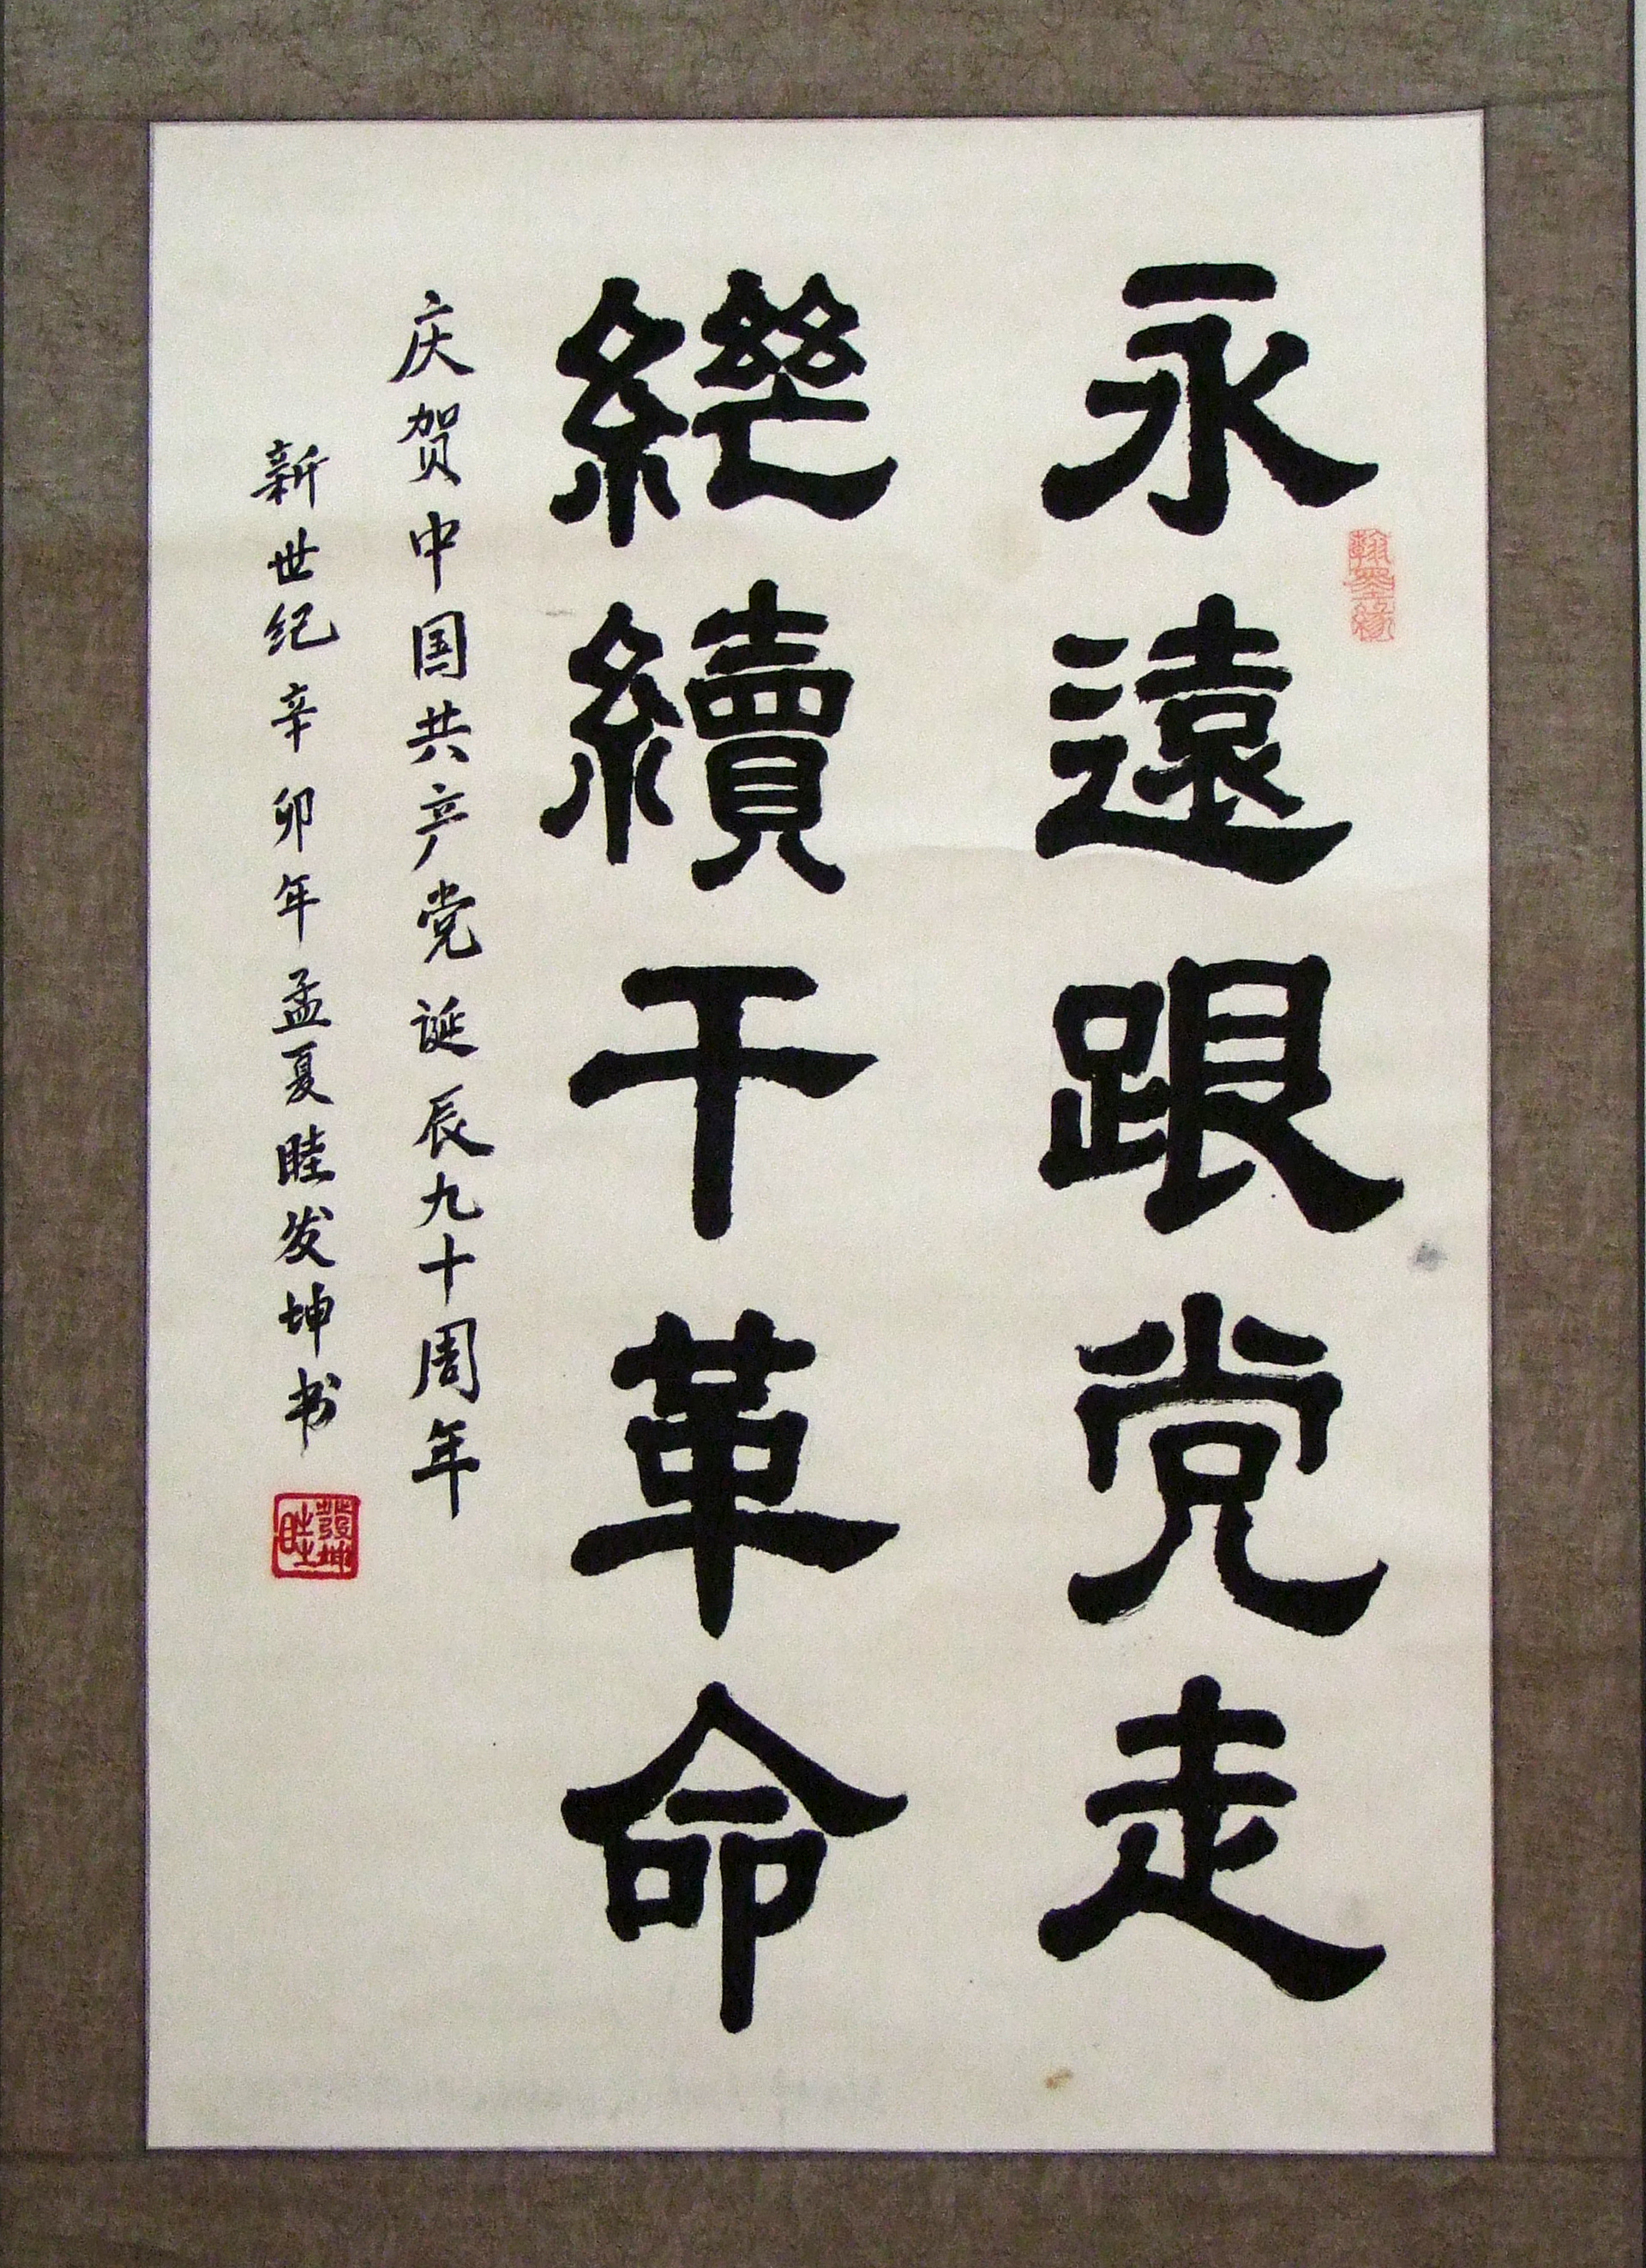 永遠跟党走
繼續干革命
庆贺中国共产党诞辰九十周年
新世纪辛卯年孟夏眭发坤书
翰墨缘
眭發坤